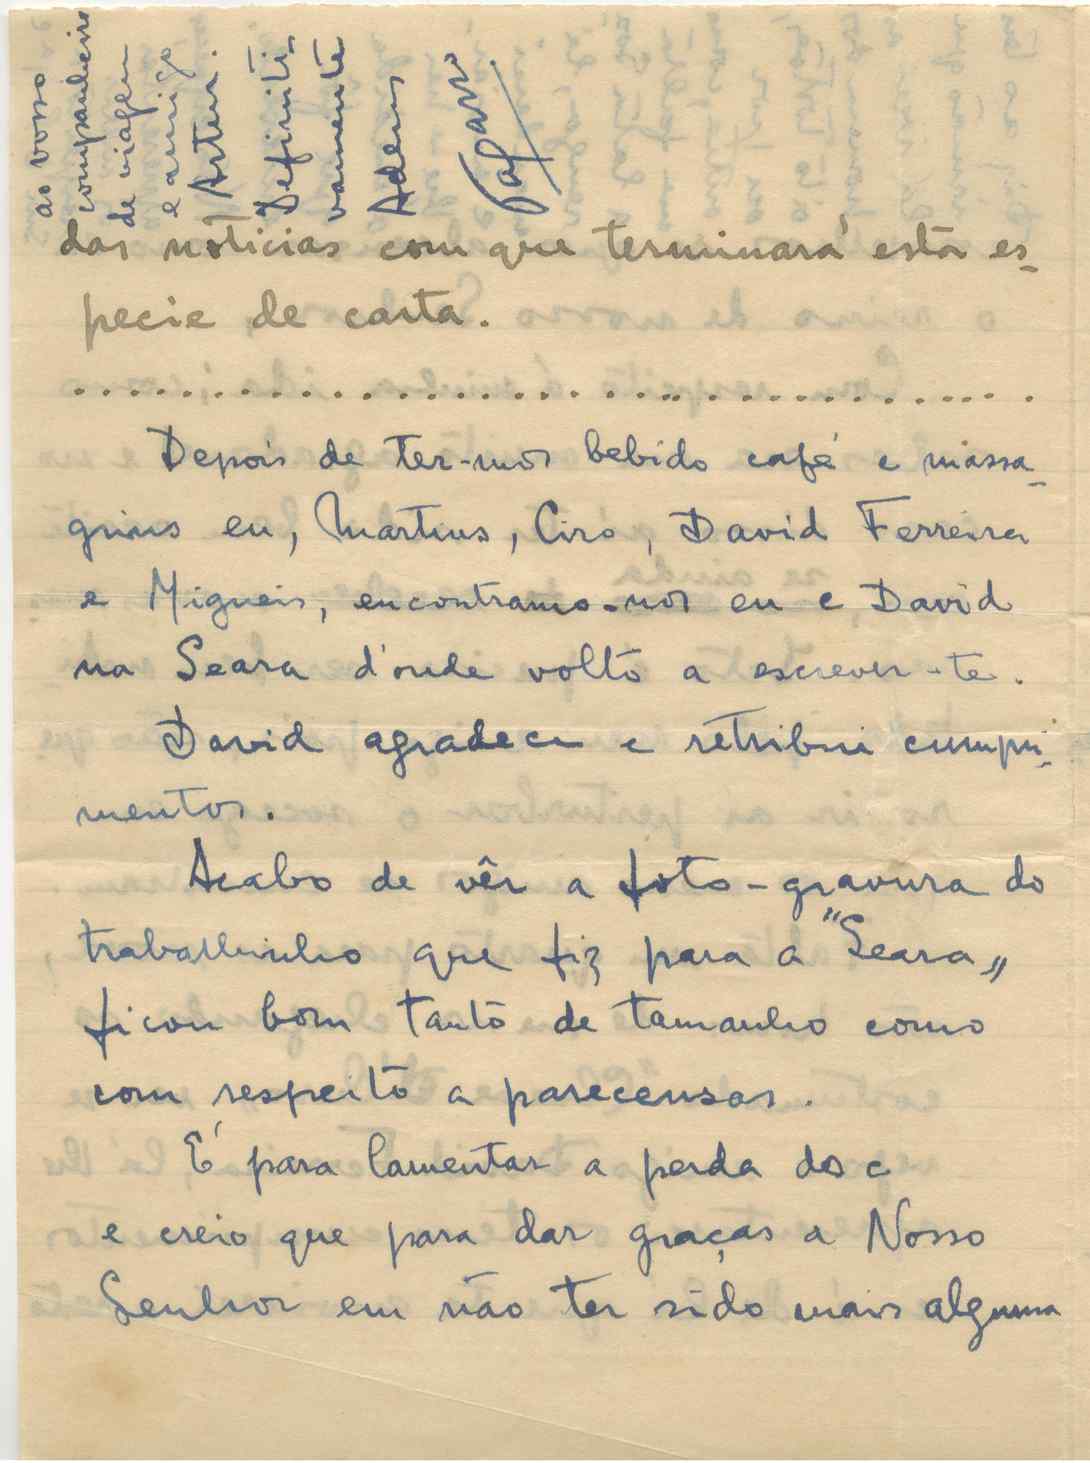 ao vosso
companheiro
de viagem
e amigo
Artur.
Definiti-
vamente
Adeus
das noticias com que terminará esta es-
pecie de carta.
Depois de ter-mos bebido café e massa-
grins eu, Martins, Ciro, David Ferreira
e Migueis, encontramo-nos eu e David
na Seara d'onde volto a escrever-te.
David agradece e retribui cumpri-
mentos.
Acabo de vêr a foto-gravura do
trabalhinho que fiz para a "Seara„
ficou bom tanto de tamanho como
com respeito a parecensas.
É para lamentar a perda dos c
e creio que para dar graças a Nosso
Senhor em não ter sido mais alguma